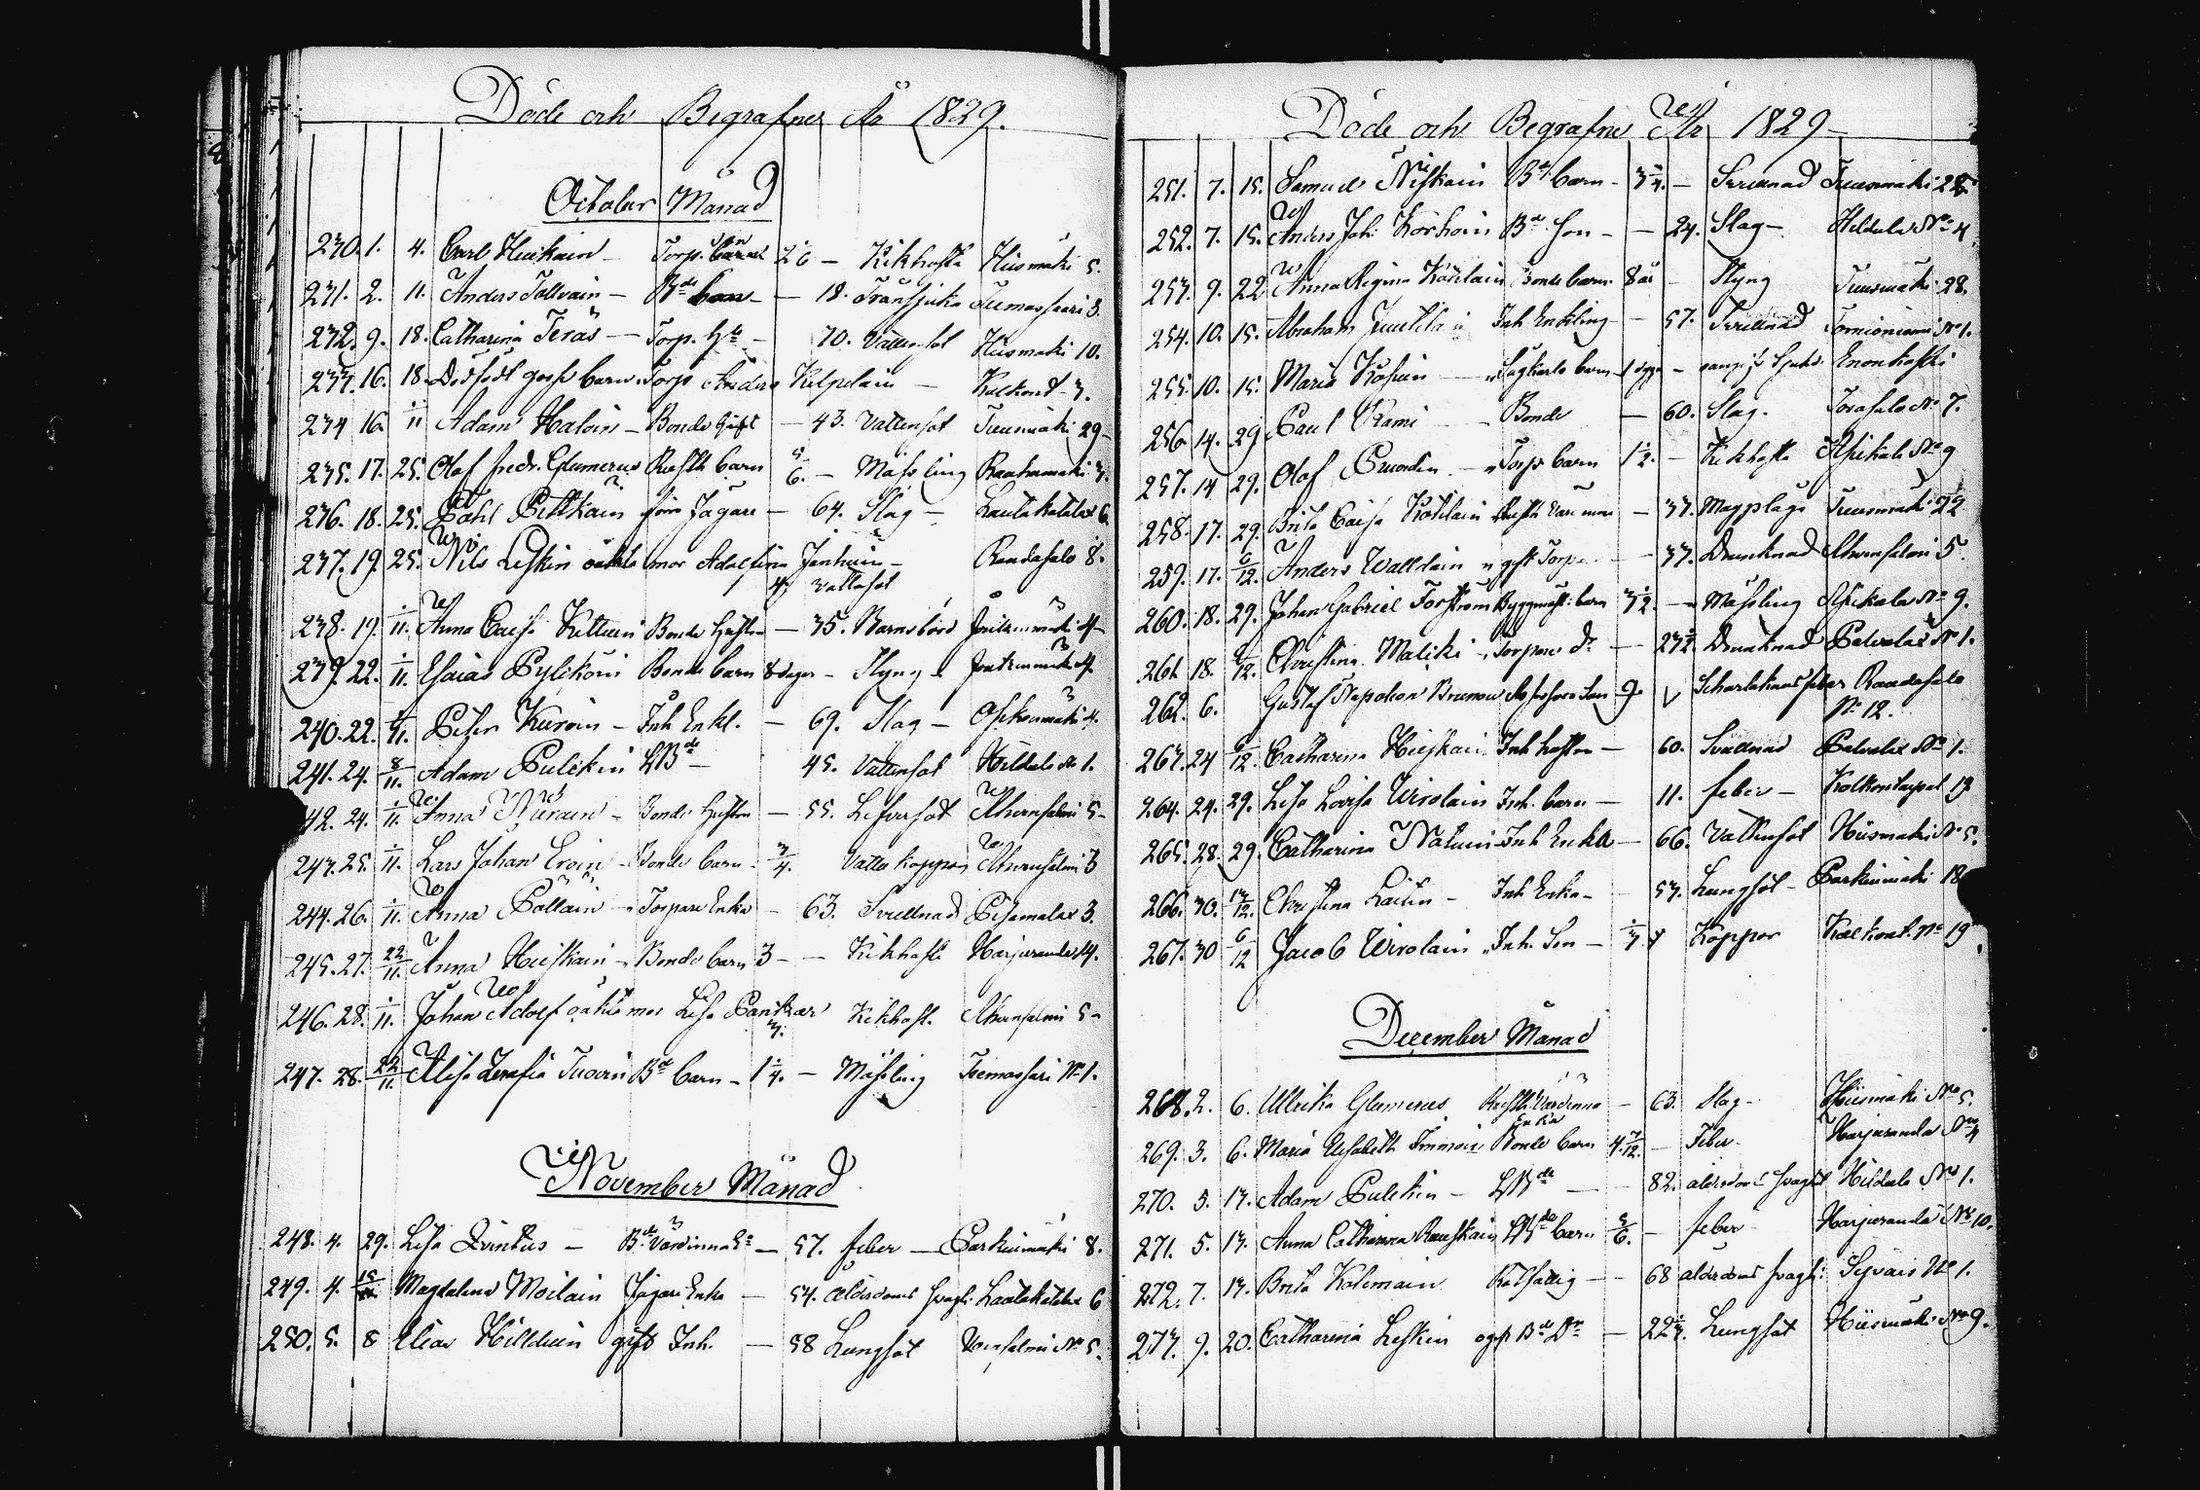 Döde och Begrafne År 1829.
October Månad
230. 1. 4. Carl Huskain Torp. barn Kikhosta Hiismäki 5.
231. 2. 11. Anders Tolvain Bde 18. Transjuka Tuemassaari 3.
232. 9. 18. Catharina Teräs Torp. 70. Vattusot Hiismäki 10.
233. 16. 18. Dödfödt gosse barn Torp Anders Kilpelain 3.
234 16. 1/11 Adam Haloin Bonde Gift 43. Vattensot Tuusmäki 29
235. 17. 25. Olof Fredr. Glumerus Rusth barn 5/6. Mässling Raatramäki 3.
236. 18. 25. Påhl Pittkäin förre Jägare 64. Slag Lautakatala 6.
237. 19. 25. Nils Leskin oäkta mor Adolfina Jänhuin Randasalo 8.
vattusot
238. 19. 1/11. Anna Caisa Kettuin Bonde Hustru 35. Barnsbörd 4
239. 22. 1/11. Esaias Pyliköin Bonde barn 8 dagar Styng 4
240. 22. 1/11. Peter Kuroin Inh Enkl. 69. Slag Osikonmäki 4.
241. 24. 8/11. Adam Pulckin LBde 45. Vattensot Hildala No 1.
242. 24. 1/11. Anna Bonde Hustru 55. Lefversot Ahvensalmi 5
243. 25. 1/11. Lars Johan Eroin Bonde barn 3/4. Vattukoppor Ahvensalmi 3
244. 26. 1/11. Anna Pöllain Torpare Enka 63. Svullnad Pihamalax 3.
245. 27. 22/11. Anna Huskain Bonde barn 3 Kikhosta Harjuranda 14.
246. 28. 1/11. Johan Adolf oäkta mor Lisa Pantzar Kikhost. Ahvensalmi 5
247. 28. 22/11. Alisa Serafia Tuovin Bde barn 1 1/4. Mässling Tuemassari No 1.
November Månad
248. 4. 29. Lisa Qvintus Bde Värdinna 57. feber Parkuimäki 8.
249. 4. 15 Magdalena Moilain Jägare Enka 54. ålderdoms svagh. Lautakatala 6
250. 5. 8 Elias Hilduin gift Inh. 58 Lungsot No 5.
Döde och Begrafne År 1829
251. 7. 15. Samuel Niskain Bde barn 3/4. Svullnad Tuusmäki 28
252. 7. 15. Anders Joh. Korhoin Bde Son 24. Slag Hildala No 4
253. 9. 22 Anna Regina Kosilain Bonde barn 8 år Styng Tuusmäki 28.
254. 10. 15. Abraham Juutilain Inh Enkling 57. Svullnad Tomioniemi No 1.
255. 10. 15. Maria Kosuin barn Enonkoski
256. 14. 29 Paul Rami Bonde 60. Slag. Torasalo No 7.
257. 14 29. Olof Torp barn 1 1/2. Kikhosta No 9
258. 17. 29. Brita Caisa Kotilain 37. Magplåga Tuusmäki 22
259. 17. 6/12. Anders Walldin gift Torpa. 37. Drunknad Ahvensalmi 5.
260. 18. 29. Johan Gabriel Forström Byggmäst: barn 3 1/2. Mässling No 9.
261. 18. 6/12. Christina Maliki Torpare dr 23 1/2. Drunknad Palvalax No 1.
262. 6. Gustaf Napoleon Brunow Son 9. Scharlakansfeber Randasalo
No 12.
263. 24 6/12. Catharina Huskain Inh hustru 60. Svullnad Palvalax No 1.
264. 24. 29. Lisa Lovisa Wirolain Inh. barn 11. feber Kolkontaipal 19
265. 28. 29. Catharina Natuin Inh Enka 66. Vattensot Hiismäki No 5.
266. 30. 13/12. Christina Laitin Inh Enka 53. Lungsot Parkuimäki 18
267. 30 6/12 Jacob Wirolain Inh. Son Koppor Kolkont. No 19
December Månad
268. 2. 6. Ullrika Glumerus Rusth. Värdinna 63. Slag Hiismäki No 5.
Enka
269. 3. 6. Maria Elisabeth Immoin Bonde barn 4 3/12. Feber Harjuranda No 4
270. 5. 13. Adam Pulckin LBde 82. ålderdoms svaght Hildala No 1.
271. 5. 13. Anna Catharina Rauskain LBde barn 5/6. feber Harjuranda No 10.
272. 7. 13. Brita Kolemain Rotfattig 68 ålderdoms svagh: Sipvais No 1.
273. 9. 20. Catharina Leskin ogft Bde Dr 22 1/2. Lungsot Hiismäki No 9.